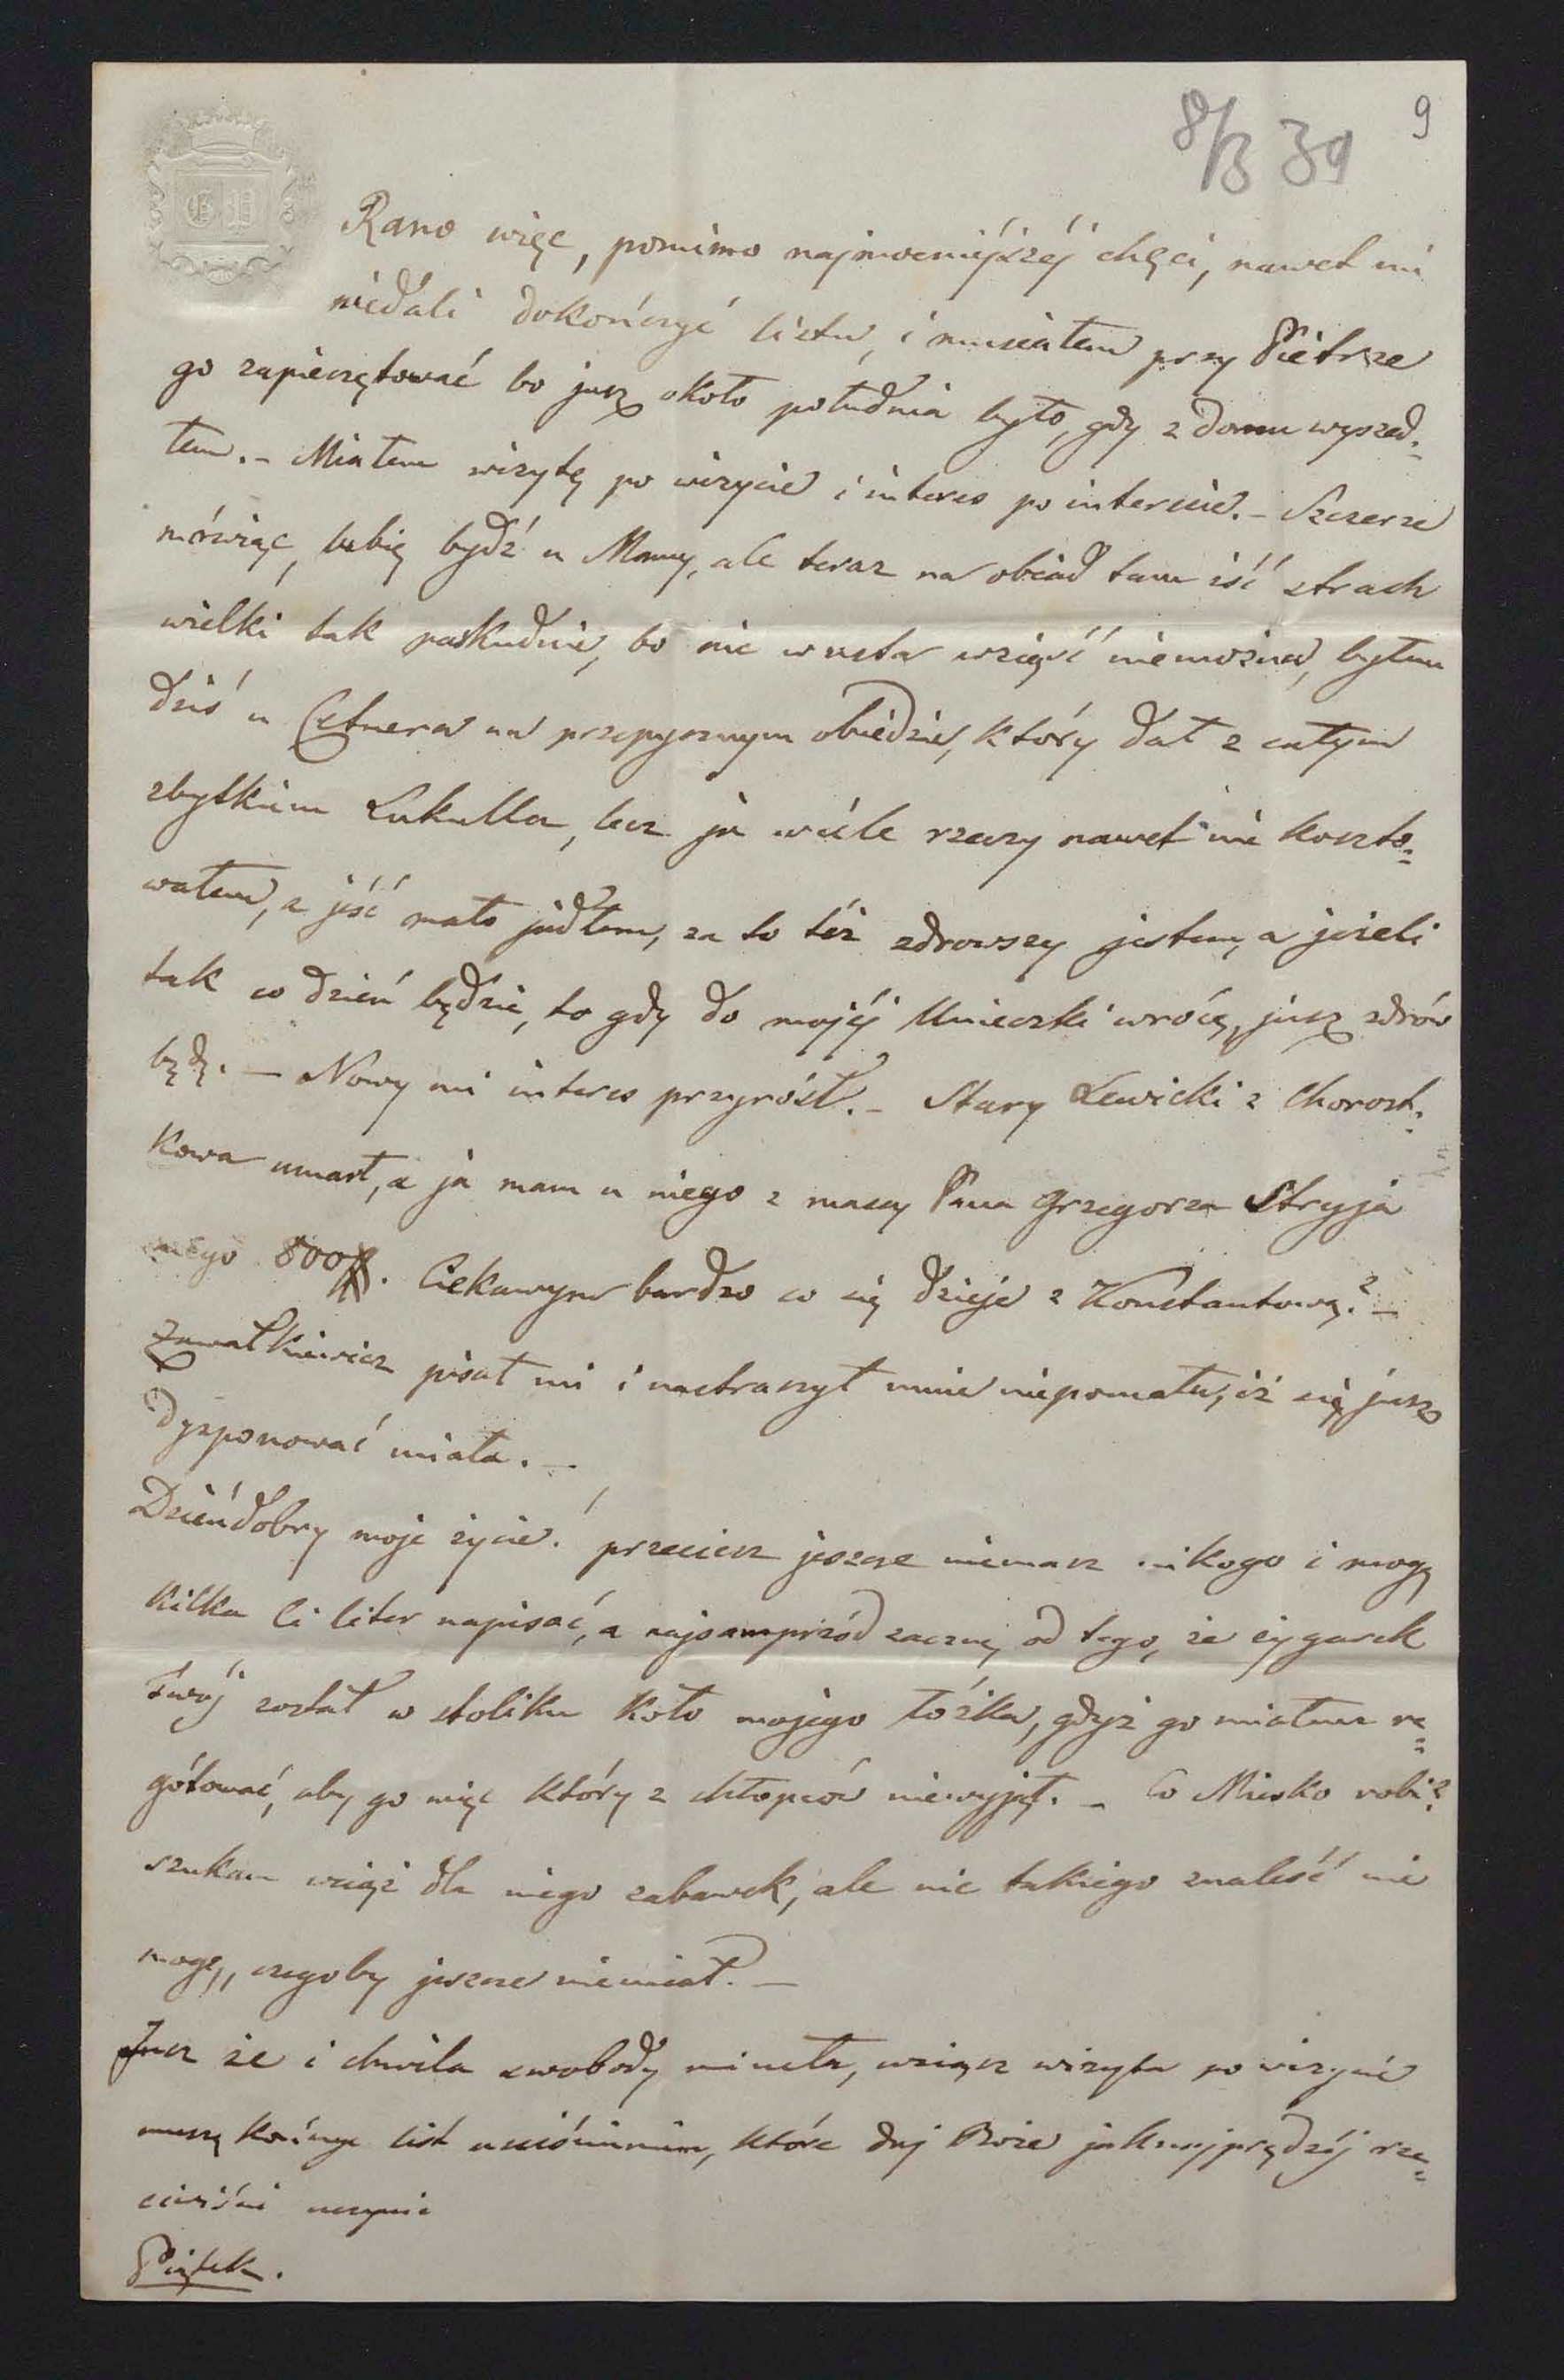 8/3 39
9
Rano więc, pomimo najmocniéjszéj chęci, nawet mi
niedali dokończyć listu, i musiałem przy Pietrze
go zapieczętować bo jusz około południa było, gdy z domu wyszed-
łem. – Miałem wizytę po wizycie i interes po interesie. – Szczerze
mówiąc, lubię bydź u Mamy, ale teraz na obiad tam iść strach
wielki tak paskudnie, bo nic w usta wziąść niemożna, byłem
dziś u Cetnera na przepysznym obiedzie, który dał z całym
zbytkiem Lukulla, lecz ja wiele rzeczy nawet nie koszto=
wałem, a jeść mało jadłem, za to téż zdrowszy jestem, a jeżeli
tak co dzień będzie, to gdy do mojéj Unieczki wrócę, jusz zdrów
będę. — Nowy mi interes przyrósł. – Stary Lewicki z Chorost-
kowa umarł, a ja mam u niego z massy Pana Grzegorza Stryja
mego 800#. Ciekawym bardzo co się dzieje z Konstantową? –
Zawałkiewicz pisał mi i nastraszył mnie niepomału, iż się jusz
dysponować miała. —
Dzieńdobry moje życie! przeciesz jeszcze niemasz nikogo i mogę
kilka Ci liter napisać, a najsamprzód zacznę od tego, że cygarek
twój został w stoliku koło mojego łóżka, gdyż go miałem re=
gótować, aby go więc który z chłopców niewyjął. – Co Miesko robi?
szukam wciąż dla niego zabawek, ale nic takiego znaleść nie
mogę, czegoby jeszcze niemiał. —
Jusz że i chwila swobody mineła, wciąsz wizyta po wizycie
muszę kończyć list uściśnieniem, które daj Boże jaknajprędzéj rze=
ciwiśnie uczynić
Piątek.